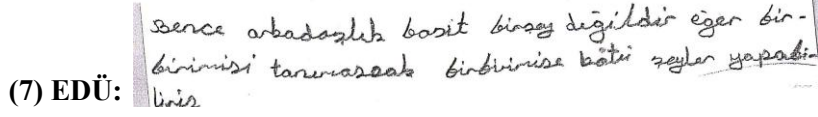 Bence arkadaşlık basit birşey değildir eğer bir-
(7) EDÜ: birimizi tanımassak birbirimize kötü şeyler yapabi-
liriz